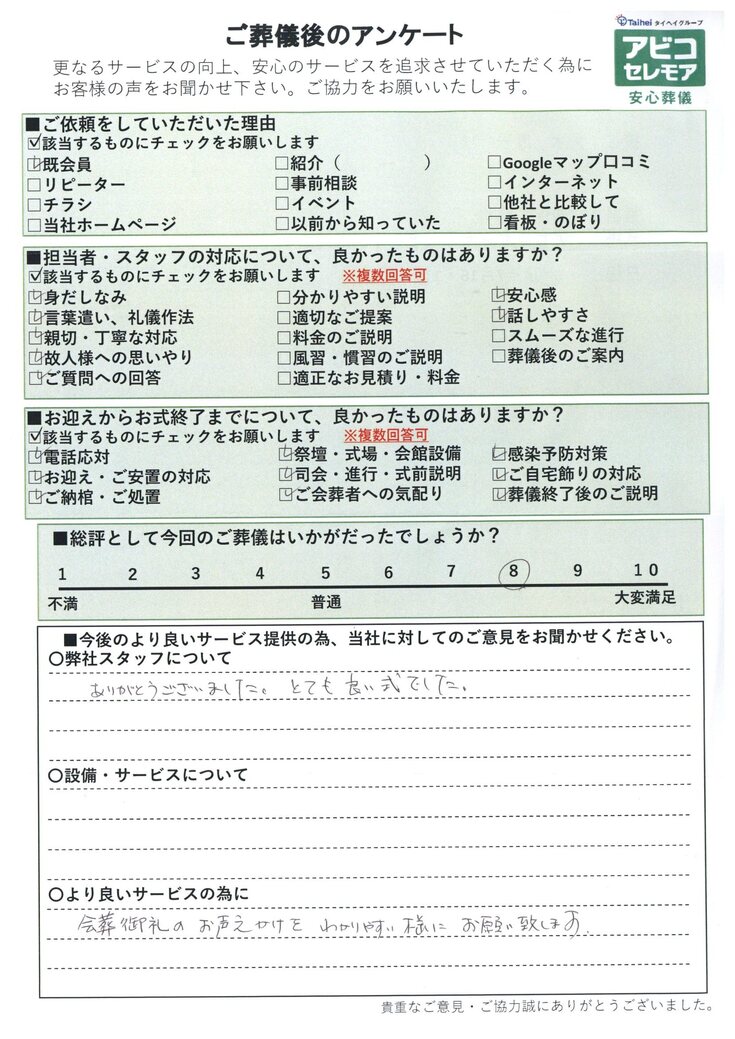 ご葬儀後のアンケート
Taihei タイヘイグループ
アビコ
セレモア
安心葬儀
更なるサービスの向上、安心のサービスを追求させていただく為に
お客様の声をお聞かせ下さい。ご協力をお願いいたします。
■ご依頼をしていただいた理由
☑該当するものにチェックをお願いします
☑既会員 □紹介（　　　　　） □Googleマップ口コミ
□リピーター □事前相談 □インターネット
□チラシ □イベント □他社と比較して
□当社ホームページ □以前から知っていた □看板・のぼり
■担当者・スタッフの対応について、良かったものはありますか？
☑該当するものにチェックをお願いします ※複数回答可
☑身だしなみ □分かりやすい説明 ☑安心感
☑言葉遣い、礼儀作法 □適切なご提案 ☑話しやすさ
☑親切・丁寧な対応 □料金のご説明 □スムーズな進行
☑故人様への思いやり □風習・慣習のご説明 □葬儀後のご案内
☑ご質問への回答 □適正なお見積り・料金
■お迎えからお式終了までについて、良かったものはありますか？
☑該当するものにチェックをお願いします ※複数回答可
☑電話応対 ☑祭壇・式場・会館設備 ☑感染予防対策
☑お迎え・ご安置の対応 ☑司会・進行・式前説明 ☑ご自宅飾りの対応
☑ご納棺・ご処置 ☑ご会葬者への気配り ☑葬儀終了後のご説明
■総評として今回のご葬儀はいかがだったでしょうか？
1 2 3 4 5 6 7 8 9 10
不満 普通 大変満足
■今後のより良いサービス提供の為、当社に対してのご意見をお聞かせください。
○弊社スタッフについて
ありがとうございました。とても良い式でした。
○設備・サービスについて
○より良いサービスの為に
会葬御礼のお声えかけを わかりやすい様に お願い致します.
貴重なご意見・ご協力誠にありがとうございました。